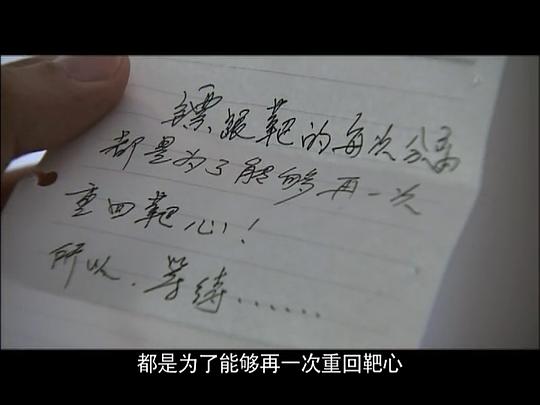 镖跟靶的每次分离
都是为了能够再一次
重回靶心!
所以.等待......
都是为了能够再一次重回靶心